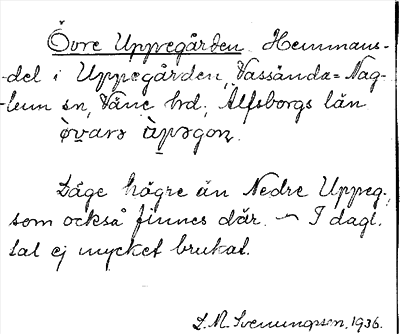 Övre Uppegården Hemmans-
-del i Uppegården, Vassända=Nag-
-lum sn, Väne hd, Älfsborgs län
òvarə àpəgoɳ.
Läge högre än Nedre Uppeg.,
som också finnes där. — I dagl.
tal ej mycket brukat.
L. M. Svenungsson, 1936.